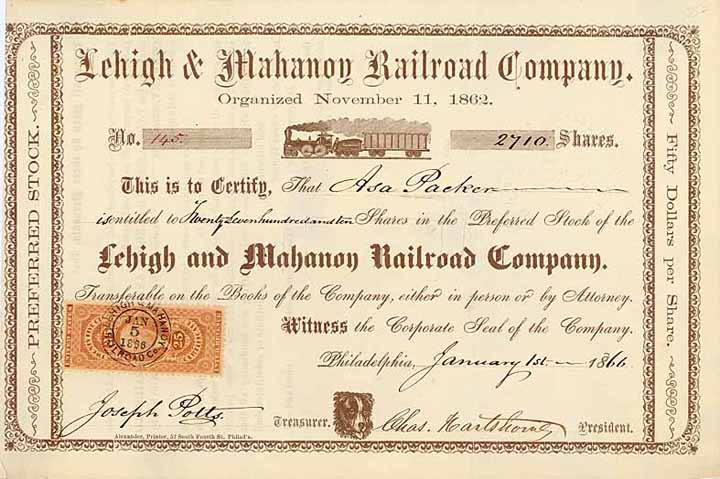 Lehigh & Mahanoy Railroad Company.
Organized November 11, 1862.
No. 145. 2710 Shares.
This is to Certify, That Asa Packer
is entitled to Twenty Seven hundred and ten Shares in the Preferred Stock of the
Lehigh and Mahanoy Railroad Company.
Transferable on the Books of the Company, either in person or by Attorney.
Witness the Corporate Seal of the Company.
Philadelphia, January 1st 1866
Joseph Potts Treasurer. Chas. Hartshorne President.
Alexander, Printer, 52 South Fourth St. Philad'a.
PREFERRED STOCK.
Fifty Dollars per Share.
LEHIGH & MAHANOY
JAN
5
1866
RAILROAD Co.
25